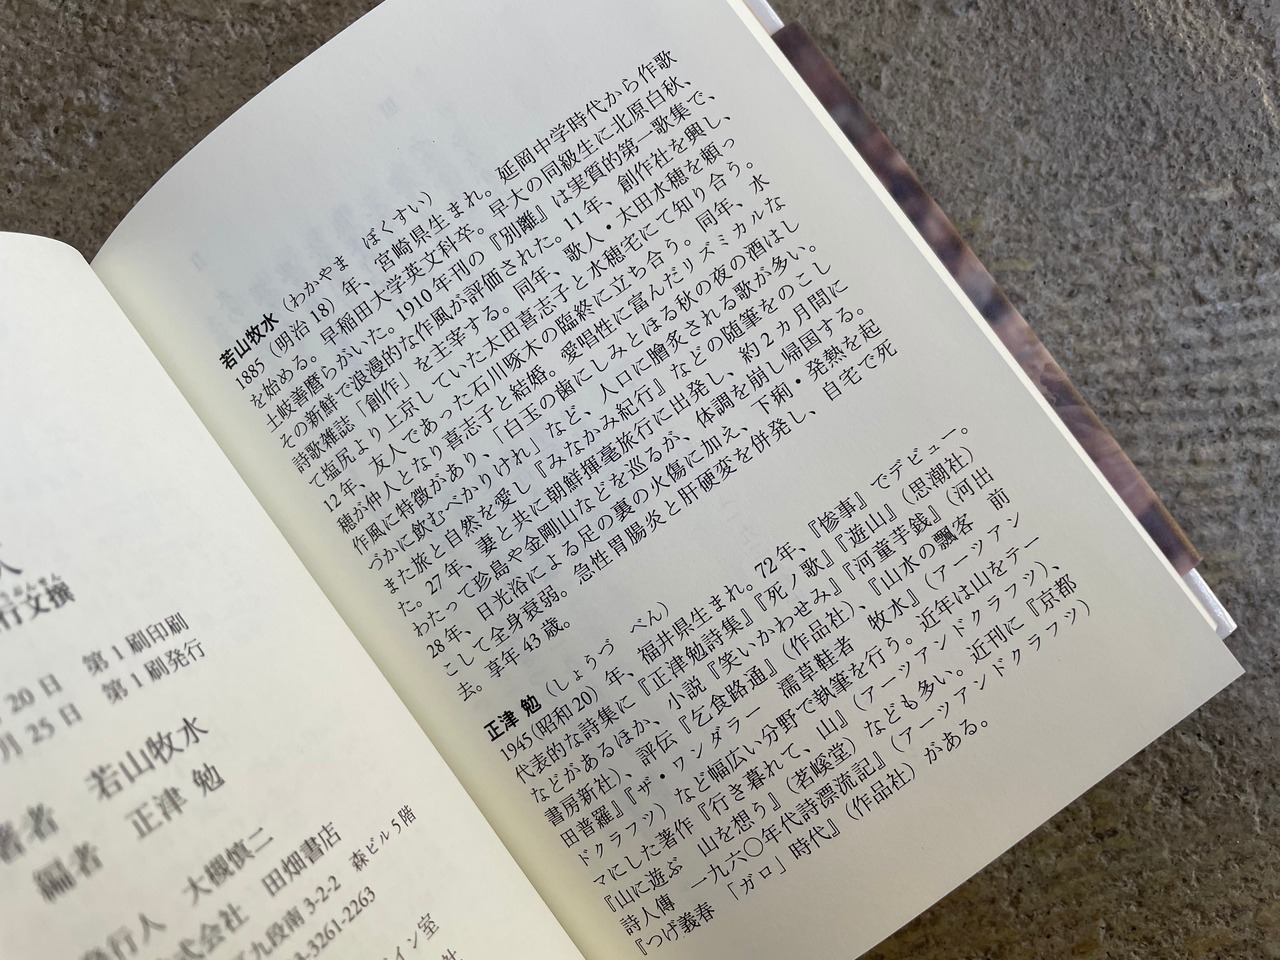 行文撰
20日 第1刷印刷
月25日 第1刷発行
著者 若山牧水
編者 正津 勉
発行人 大槻慎二
株式会社 田畑書店
九段南3-2-2 森ビル5階
3-3261-2263
イン室
若山牧水(わかやま ぼくすい)
1885(明治18)年、宮崎県生まれ。延岡中学時代から作歌
を始める。早稲田大学英文科卒。早大の同級生に北原白秋、
土岐善麿らがいた。1910年刊の『別離』は実質的第一歌集で、
その新鮮で浪漫的な作風が評価された。11年、創作社を興し、
詩歌雑誌「創作」を主宰する。同年、歌人・太田水穂を頼っ
て塩尻より上京していた太田喜志子と水穂宅にて知り合う。
12年、友人であった石川啄木の臨終に立ち合う。同年、水
穂が仲人となり喜志子と結婚。愛唱性に富んだリズミカルな
作風に特徴があり、「白玉の歯にしみとほる秋の夜の酒はし
づかに飲むべかりけれ」など、人口に膾炙される歌が多い。
また旅と自然を愛し『みなかみ紀行』などの随筆をのこし
た。27年、妻と共に朝鮮揮毫旅行に出発し、約2ヵ月間に
わたって珍島や金剛山などを巡るが、体調を崩し帰国する。
28年、日光浴による足の裏の火傷に加え、下痢・発熱を起
こして全身衰弱。急性胃腸炎と肝硬変を併発し、自宅で死
去。享年43歳。
正津 勉(しょうづ べん)
1945(昭和20)年、福井県生まれ。72年、『惨事』でデビュー。
代表的な詩集に『正津勉詩集』『死ノ歌』『遊山』(思潮社)
などがあるほか、小説『笑いかわせみ』『河童芋銭』(河出
書房新社)、評伝『乞食路通』(作品社)、『山水の飄客 前
田普羅』『ザ・ワンダラー 濡草鞋者 牧水』(アーツアン
ドクラフツ)など幅広い分野で執筆を行う。近年は山をテー
マにした著作『行き暮れて、山』(アーツアンドクラフツ)、
『山に遊ぶ 山を想う』(茗溪堂)なども多い。近刊に『京都
詩人傳 一九六〇年代詩漂流記』(アーツアンドクラフツ)
『つげ義春 「ガロ」時代』(作品社)がある。